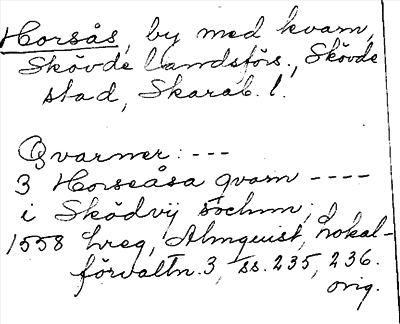 Horsås, by med kvarn,
Skövde landsförs., Skövde
stad, Skarab. l.
Qvarner: ---
3 Horseåsa qvarn ----
i Sködvij sochnn;
1558 Lreg, Almquist, Lokal-
förvaltn. 3, ss. 235, 236.
orig.